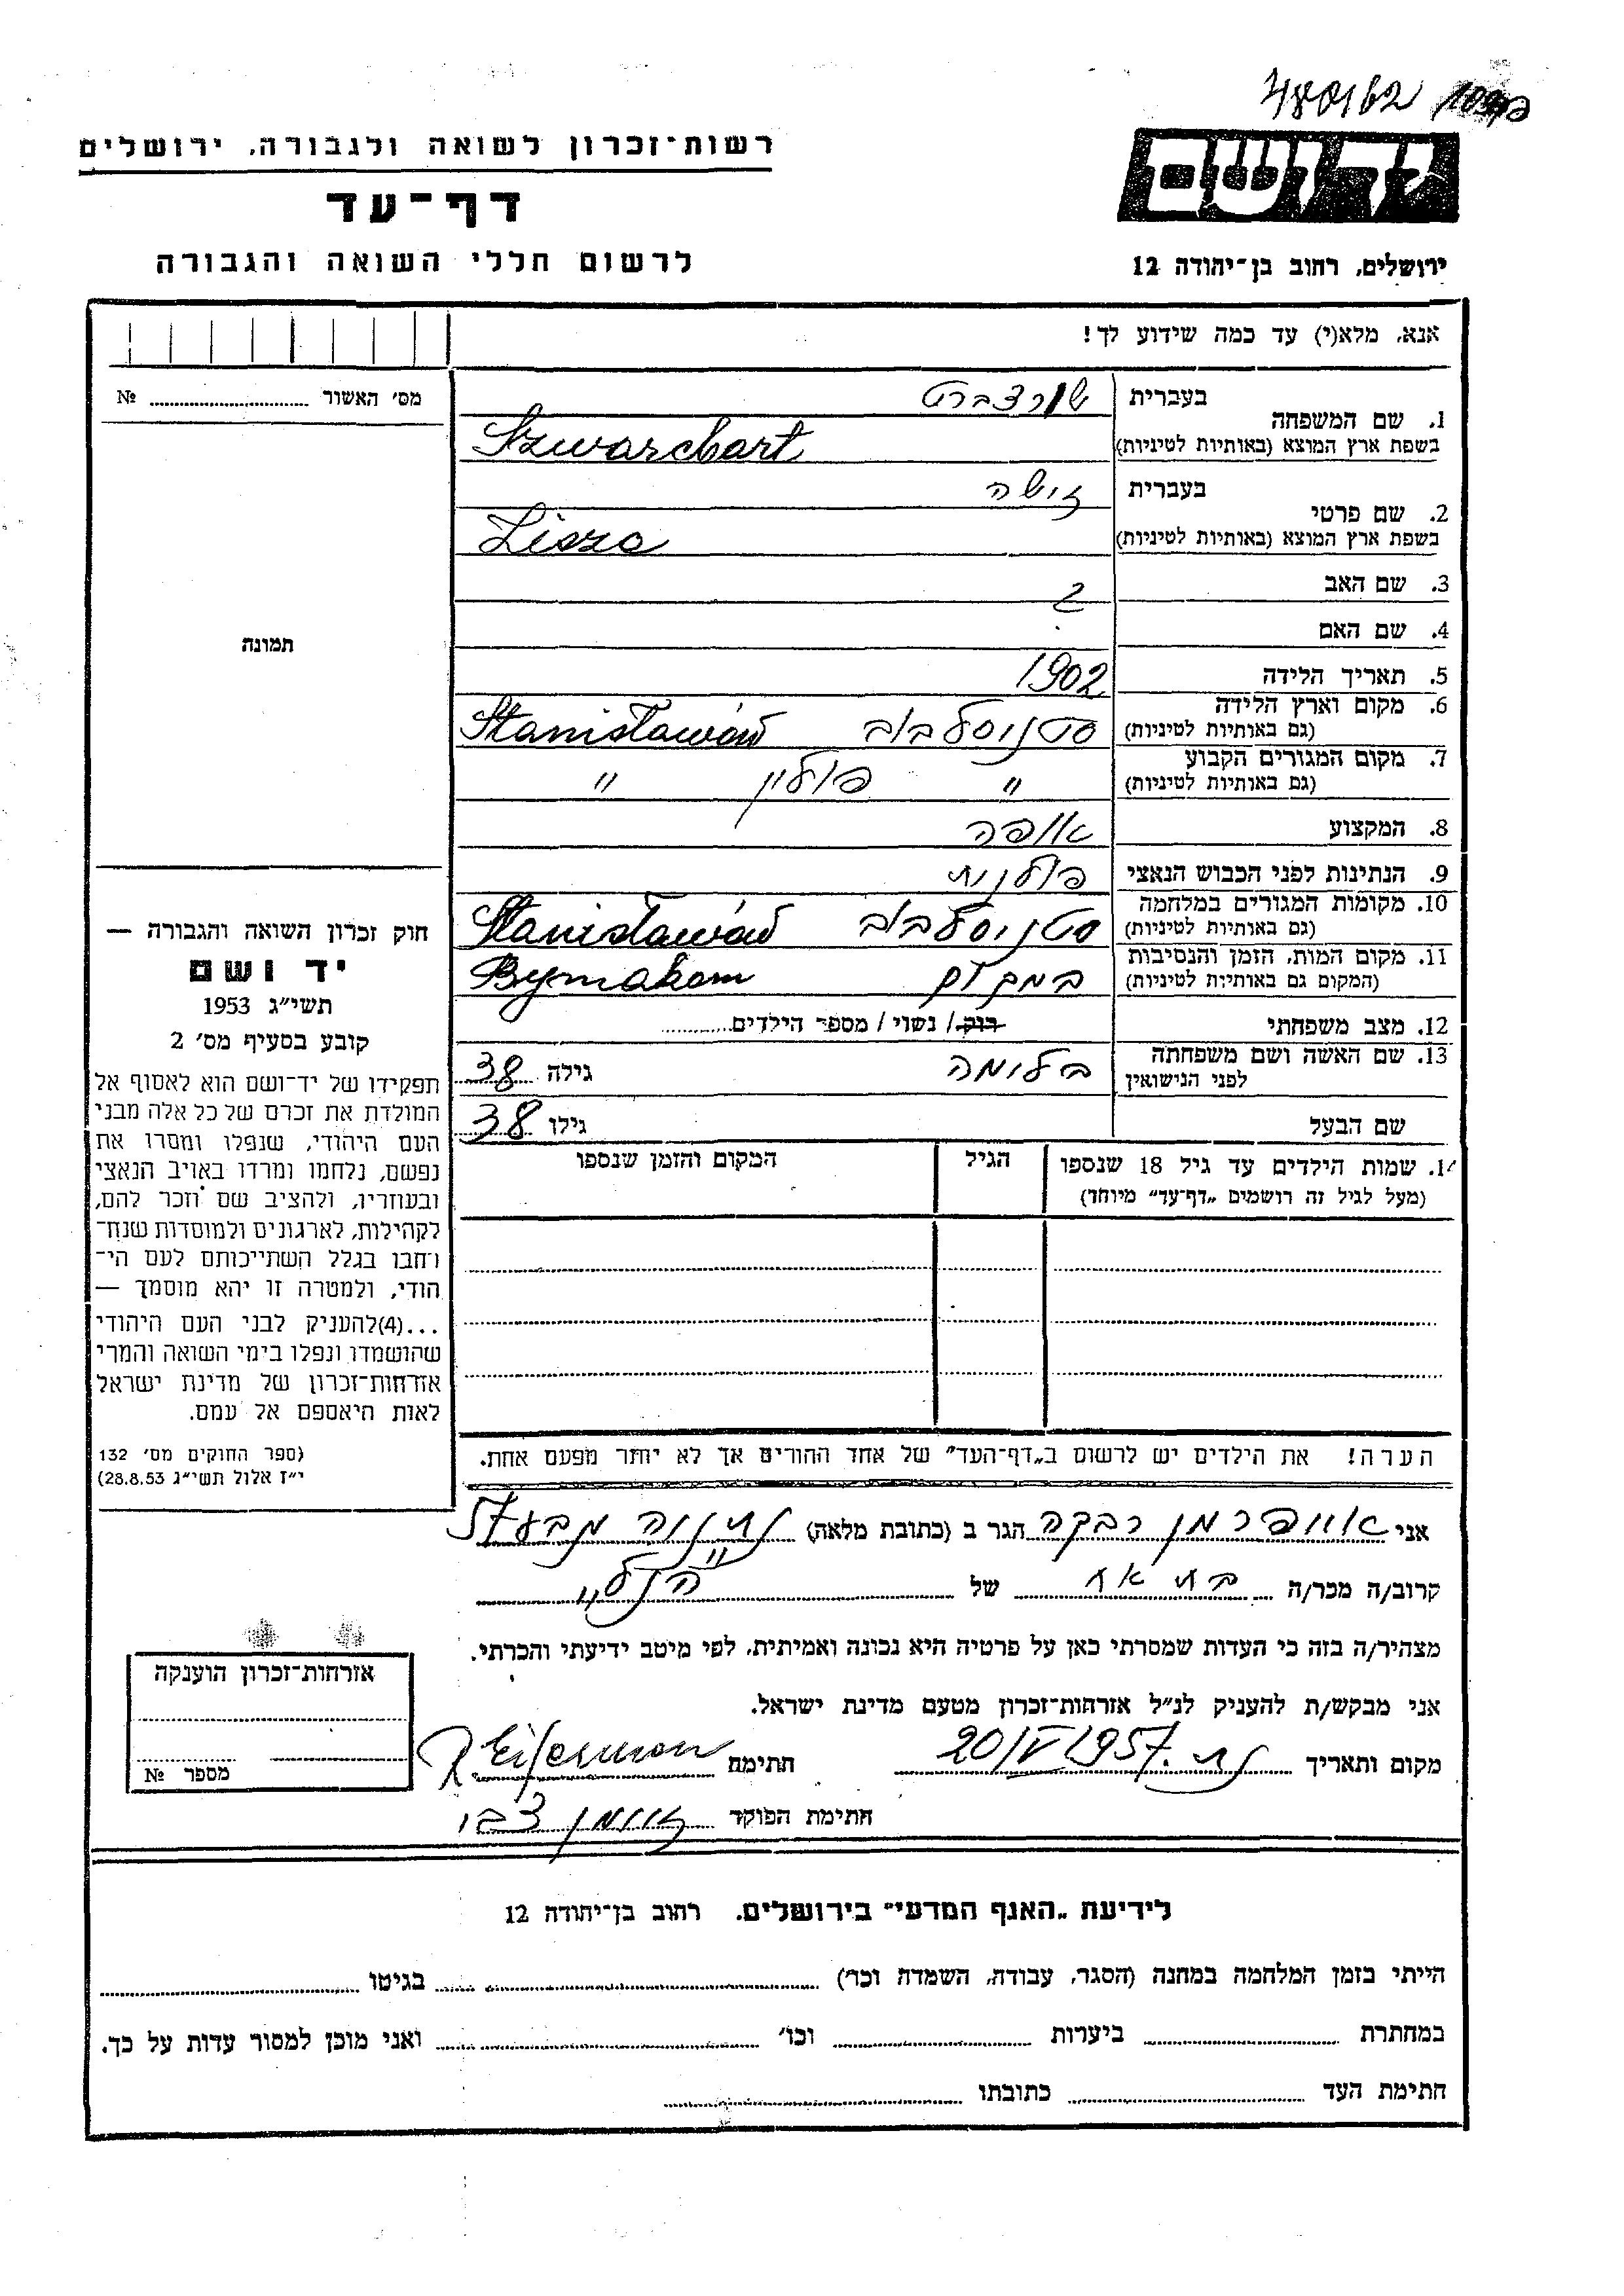 748162
רשות־זכרון לשואה ולגבורה, ירושלים
דף־עד
לרשום חללי השואה והגבורה
יד ושם
ירושלים, רחוב בן־יהודה 12
אנא, מלא(י) עד כמה שידוע לך!
מס׳ האשור № 
תמונה
1. שם המשפחה
בעברית שורצברט
בשפת ארץ המוצא (באותיות לטיניות) Szwarcbart
2. שם פרטי
בעברית זישה
בשפת ארץ המוצא (באותיות לטיניות)
3. שם האב
4. שם האם
5. תאריך הלידה 1902
6. מקום וארץ הלידה
(גם באותיות לטיניות) סטניסלבוב Stanisławów
7. מקום המגורים הקבוע
(גם באותיות לטיניות) " פולין "
8. המקצוע אופה
9. הנתינות לפני הכבוש הנאצי פולנית
10. מקומות המגורים במלחמה
(גם באותיות לטיניות) סטניסלבוב Stanisławów
11. מקום המות, הזמן והנסיבות
(המקום גם באותיות לטיניות) במקום Bymakom
12. מצב משפחתי רוק/ נשוי/ מספר הילדים
13. שם האשה ושם משפחתה
לפני הנישואין בלומה גילה 38
שם הבעל גילו 38
14. שמות הילדים עד גיל 18 שנספו הגיל המקום והזמן שנספו
(מעל לגיל זה רושמים „דף־עד״ מיוחד)
הערה! את הילדים יש לרשום ב„דף־העד״ של אחד ההורים אך לא יותר מפעם אחת.
חוק זכרון השואה והגבורה —
יד ושם
תשי״ג 1953
קובע בסעיף מס׳ 2
תפקידו של יד־ושם הוא לאסוף אל
המולדת את זכרם של כל אלה מבני
העם היהודי, שנפלו ומסרו את
נפשם, נלחמו ומרדו באויב הנאצי
ובעוזריו, ולהציב שם וזכר להם,
לקהילות, לארגונים ולמוסדות שנח־
רחבו בגלל השתייכותם לעם הי־
הודי, ולמטרה זו יהא מוסמך —
...(4) להעניק לבני העם היהודי
שהושמדו ונפלו בימי השואה והמרי
אזרחות־זכרון של מדינת ישראל
לאות היאספם אל עמם.
(ספר החוקים מס׳ 132
י״ז אלול תשי״ג 28.8.53)
אני אייפרמן רבקה הגר ב (כתובת מלאה) נתניה
קרוב/ה מכר/ה בת אח של הנ״ל
מצהיר/ה בזה כי העדות שמסרתי כאן על פרטיה היא נכונה ואמיתית, לפי מיטב ידיעתי והכרתי.
אני מבקש/ת להעניק לנ״ל אזרחות־זכרון מטעם מדינת ישראל.
מקום ותאריך נת. 20/V 1957 חתימה
חתימת הפוקד צבי
אזרחות־זכרון הוענקה
מספר №
לידיעת „האגף המדעי״ בירושלים, רחוב בן־יהודה 12
הייתי בזמן המלחמה במחנה (הסגר, עבודה, השמדה וכד׳) בגיטו
במחתרת ביערות וכו׳ ואני מוכן למסור עדות על כך.
חתימת העד כתובתו